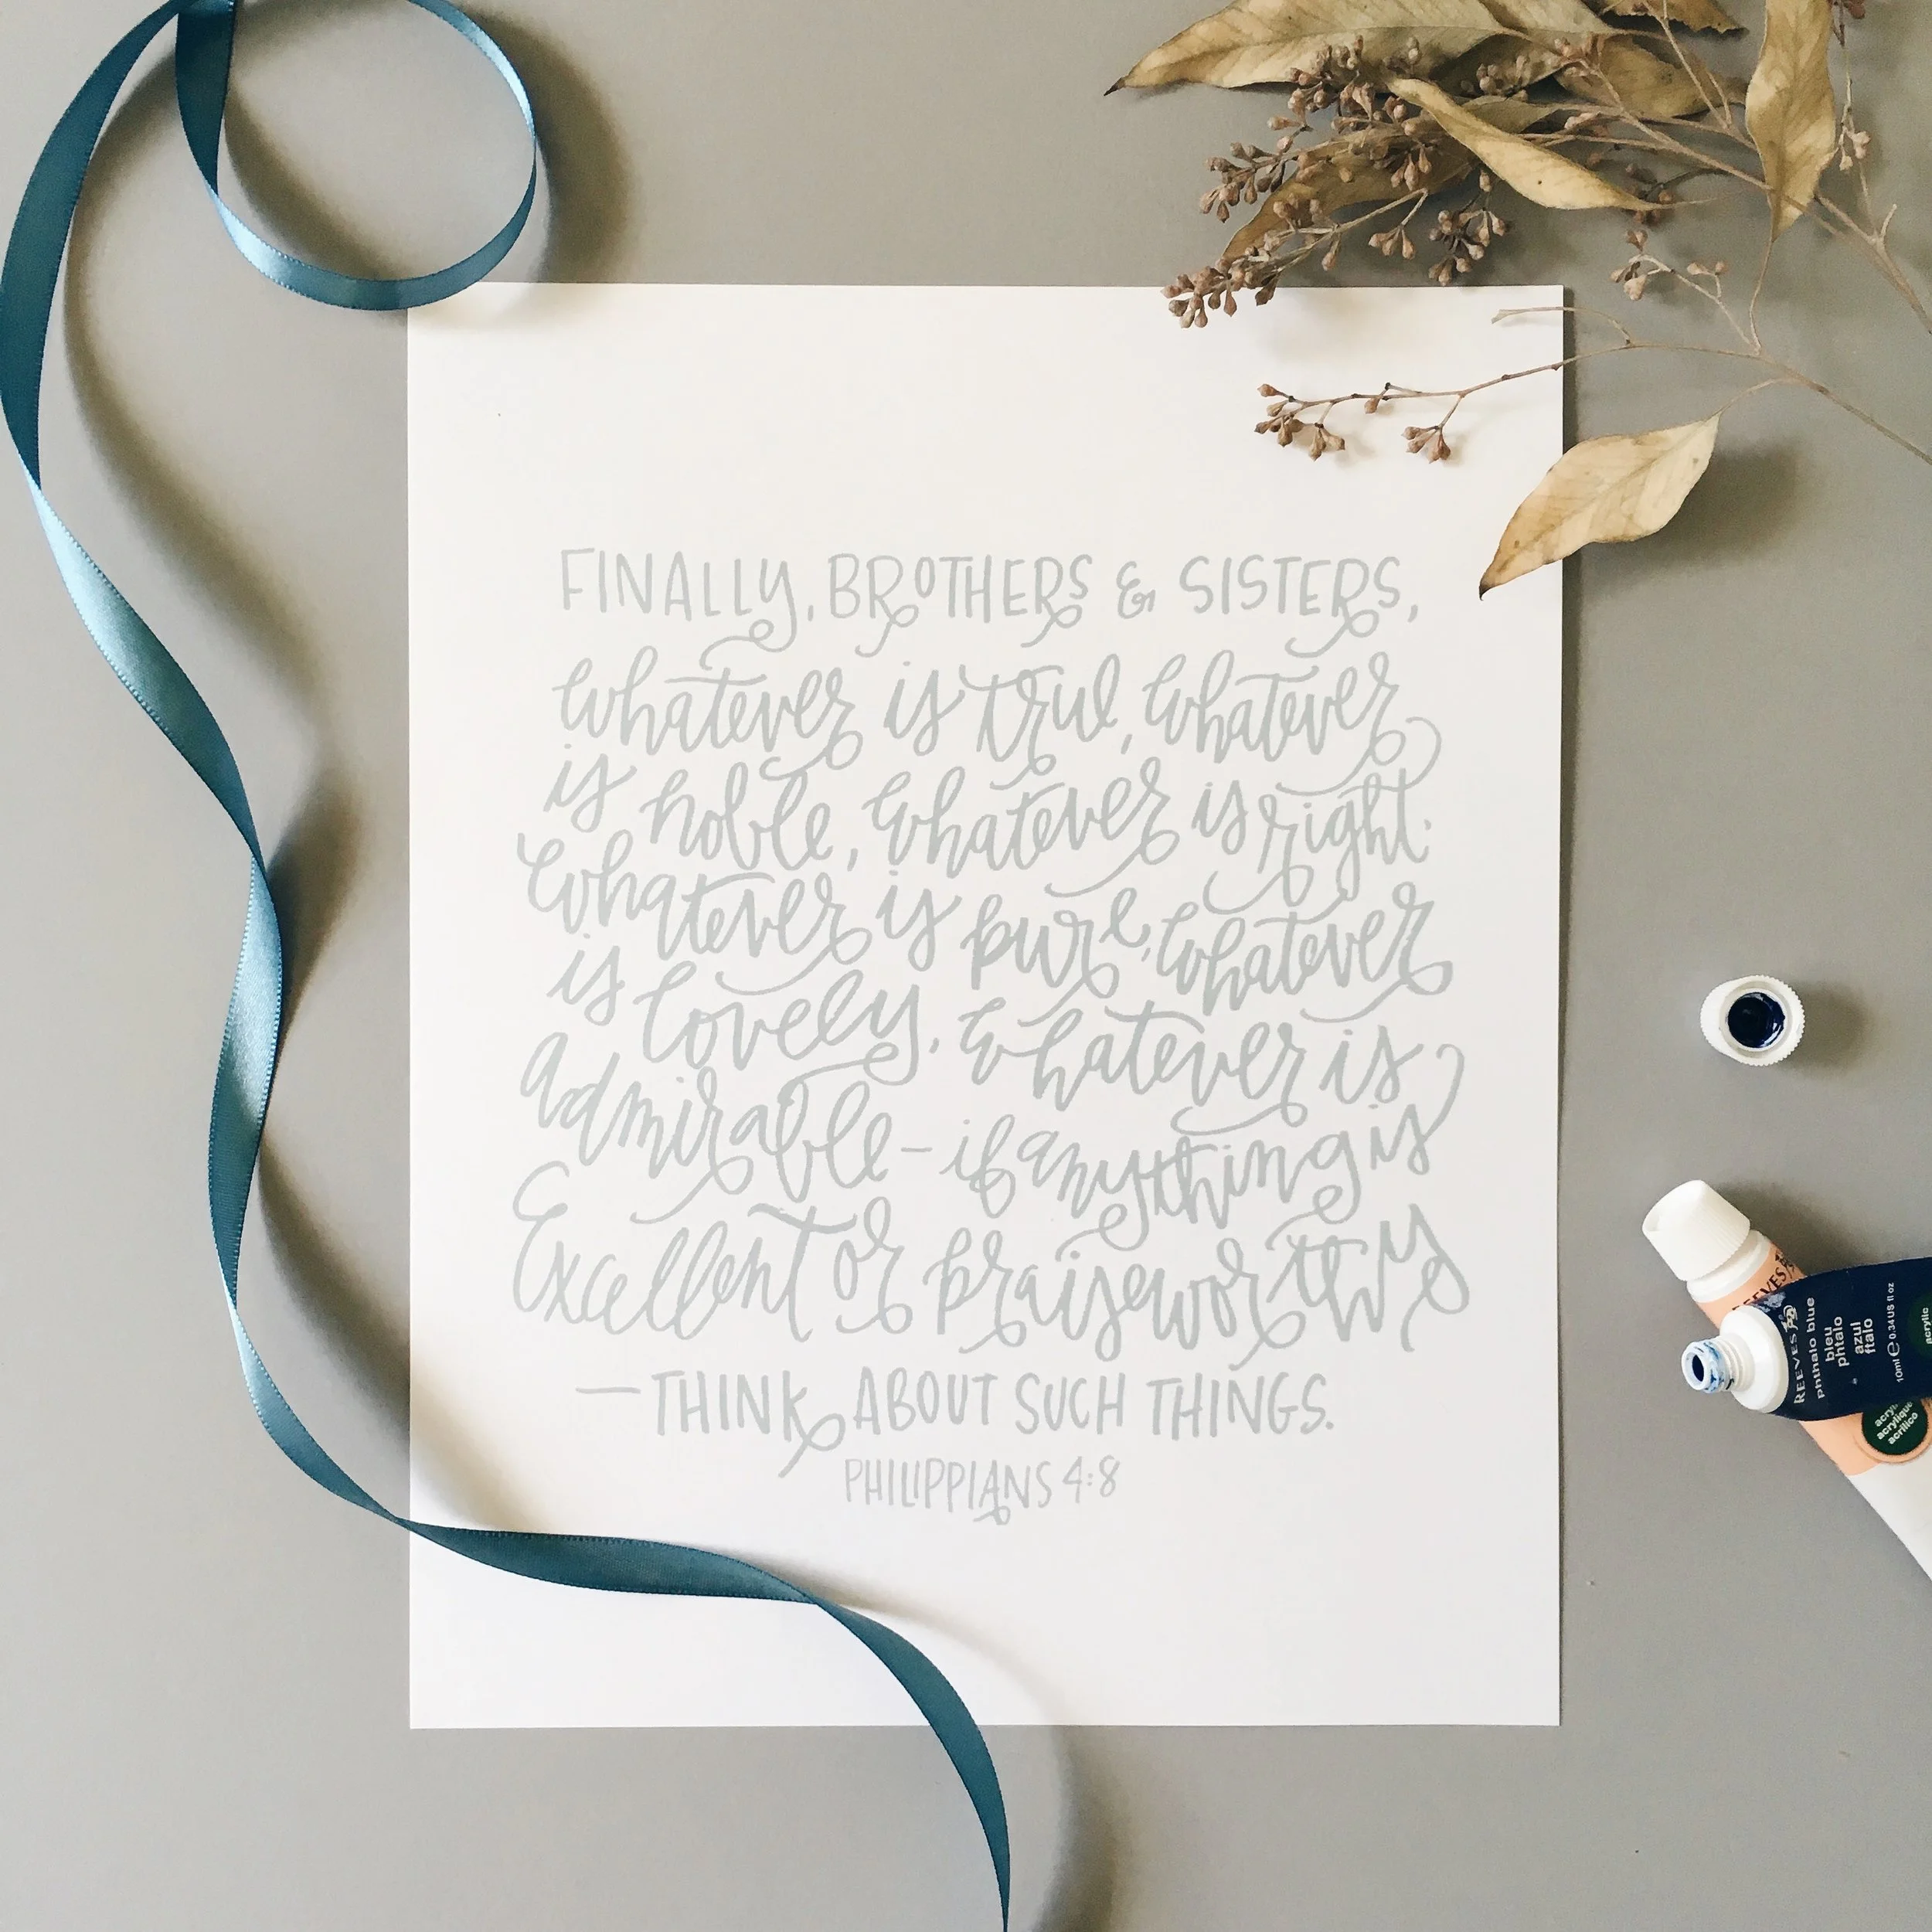 FINALLY, BROTHERS & SISTERS,
whatever is true, whatever
is noble, whatever is right,
whatever is pure, whatever
is lovely, whatever is
admirable - if anything is
Excellent or praiseworthy
— THINK ABOUT SUCH THINGS.
PHILIPPIANS 4:8
REEVES
phthalo blue
bleu
phtalo
azul
ftalo
10ml e 0.34US fl oz
acrylic
acrylique
acrílico